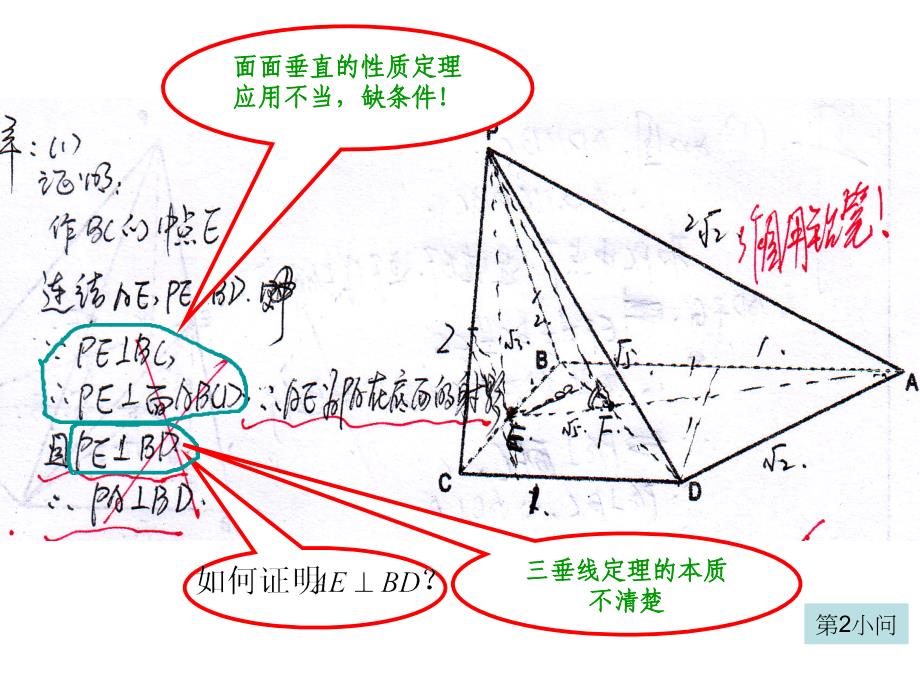 面面垂直的性质定理
应用不当，缺条件！
：(1)
证明：
作BC的中点E
连结AE，PE，BD.
∵ PE⊥BC，
∴ PE⊥面ABCD ∴AE为PA在底面的射影
且PE⊥BD
∴ PA⊥BD.
P
2√2
作图用铅笔！
2
2
√3
B
√3
1
A
E
√3
F
√2
C
1
D
如何证明AE⊥BD？
三垂线定理的本质
不清楚
第2小问